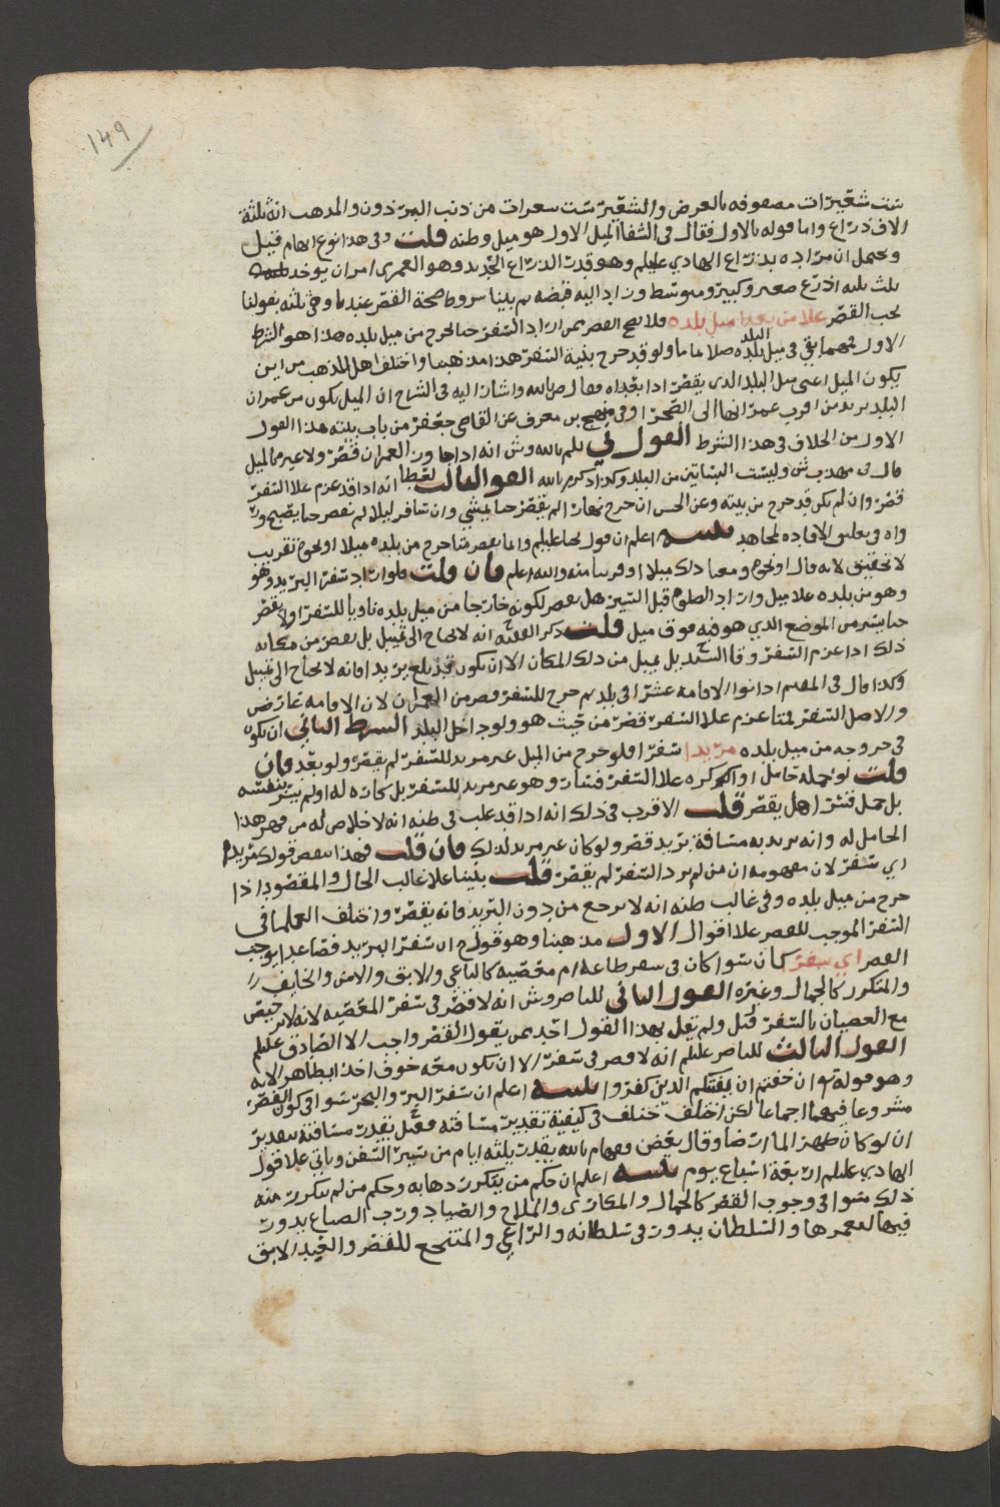 149
ست شعيرات مصفوفه بالعرض والشعيره ست سعرات من ذنب البرذون والمدهب انه ثلثة
الاف ذراع واما قوله بالاول فقال فى الشفا الميل الاول هو ميل وطنه قلت وفى هذا نوع ابهام قيل
ويحمل ان مراده بذراع الهادي عليلم وهو قدر الذراع الحديد وهو العمرى امر ان يوخذ
ثلث ثلثه اذرع صغير وكبير ومتوسط وزاد اليه قبضه ثم بينا شروط صحة القصر عندنا وهى ثلثه بقولنا
يجب القصر علا من بعدا ميل بلده ولا يصح القصر ممن اراد السفر حتا يخرج من ميل بلده هذا هو الشرط
الاول فمهما بقي فى ميل بلده صلا تماما ولو قد خرج بنية السفر هذا مذهبنا واختلف اهل المذهب من اين
يكون الميل اعنى ميل البلد الذى يقصر اذا تعداه فقال ص بالله واشار اليه فى الشرح ان الميل يكون من عمران
البلد يريد من اقرب عمرانها الى الصحرا وفى منهج بن معرف عن القاضي جعفر من باب بيته هذا القول
الاول من الخلاف فى هذا الشرط القول لي للم بالله وش انه اذا جاوز العمران قصر ولا عبره بالميل
قال فى مهذب ش وليست البساتين من البلد وكذا ذكره م بالله القو الثالث لعطا انه اذا قد عزم علا السفر
قصر وان لم يكن قد خرج من بيته وعن الحسن ان خرج نهارا لم يقصر حتا يمشي وان سافر ليلا لم يقصر حتا يصبح
لمجاهد تنبيه اعلم ان قول يحيا عليلم وانما يقصر متا خرج من بلده ميلا او نحوه تقريب
لا تحقيق لانه قال او نحوه ومعنا ذلك ميلا او قريبا منه والله اعلم فان قلت فلو اراد سفر البريد وهو
وهو من بلده علا ميل واراد الصلوه قبل السير هل يقصر لكونه خارجا من ميل بلده ناويا للسفر او لا يقصر
حتا يسير من الموضع الذي هو فيه فوق ميل قلت ذكر الفقيه انه لا يحتاج الى تمييل بل يقصر من مكانه
ذلك اذا عزم السفر وقال السيد بل يميل من ذلك المكان الا ان يكون قد بلغ بريدا فانه لا يحتاج الى تمييل
وكذا قال فى المقيم اذا نوا الاقامه عشرا فى بلد ثم خرج للسفر قصر من العمران لان الاقامه عارض
والاصل السفر فمتا عزم علا السفر قصر من حيث هو ولو داخل البلد الشرط الثاني ان يكون
فى خروجه من ميل بلده مريدا سفرا فلو خرج من الميل غير مريد للسفر لم يقصر ولو بعد فان
قلت لو حمله حامل او اكره علا السفر فسار وهو غير مريد للسفر بل كاره له او لم يسر بنفسه
بل حمل قسرا هل يقصر قلت الاقرب فى ذلك انه اذا قد غلب فى ظنه انه لا خلاص له من قهر هذا
الحامل له وانه يريد به مسافة بريد قصر ولو كان غير مريد لذلك فان قلت فهذا ينقض قولك مريدا
اي سفر لان مفهومه ان من لم يرد السفر لم يقصر قلت بنينا علا غالب الحال والمقصود اذا
خرج من ميل بلده وفى غالب ظنه انه لا يرجع من دون البريد فانه يقصر واختلف العلما فى
السفر الموجب للقصر علا اقوال الاول مذهبنا وهو قول ح ان سفر البريد فصاعدا يوجب
القصر اي سفر كان سوا كان فى سفر طاعة ام معصيه كالباغي والابق والامن والخايف
والمتكرر كالجمال وغيره القول الثاني للناصر وش انه لا قصر فى سفر المعصيه لانه لا ترخيص
مع العصيان بالسفر قيل ولم يقل بهذا القول احد ممن يقول القصر واجب الا الصادق عليلم
القول الثالث للناصر عليلم انه لا قصر فى سفر الا ان يكون معه خوف اخذا بظاهر الايه
وهو قوله تع ان خفتم ان يفتنكم الذين كفروا تنبيه اعلم ان سفر البر والبحر سوا فى كون القصر
مشروعا فيهما اجماعا لكن اختلف فى كيفية تقدير مسافته فقيل بقدر مسافته بتقدير
ان لو كان ظهر الما ارضا وقال بعض وم بالله يقدر بثلثه ايام من سير السفن وياتي علا قول
الهادي عليلم اربعة اسباع يوم تنبيه اعلم ان حكم من يتكرر ذهابه وحكم من لم يتكرر منه
ذلك سوا فى وجوب القصر كالجمال والمكارى والملاح والصياد ورب الصياع يدور
فيها ليعمرها والسلطان يدور فى سلطانه والراعي والمنتجع للقصر والعبد الابق